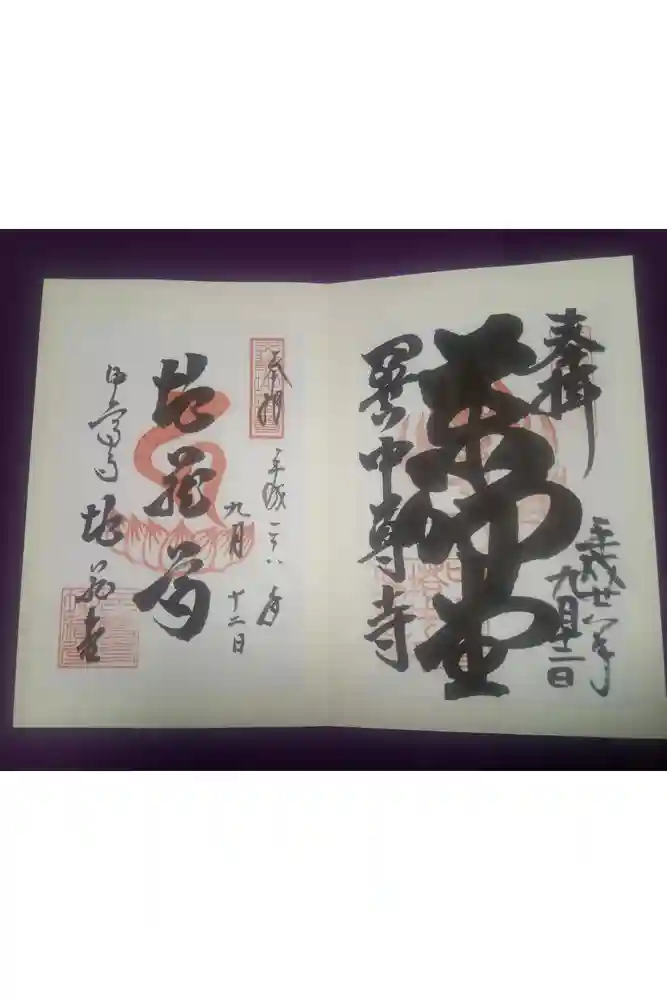 奉拝
平成廿八年
九月十二日
薬師堂
関山中尊寺
奉拝
平成二八年
九月十二日
地蔵尊
中尊寺 地蔵堂